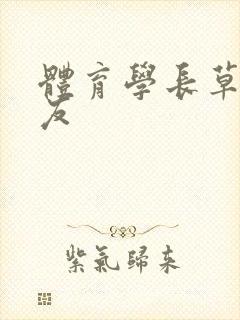 體育學長草
友
紫氣歸來